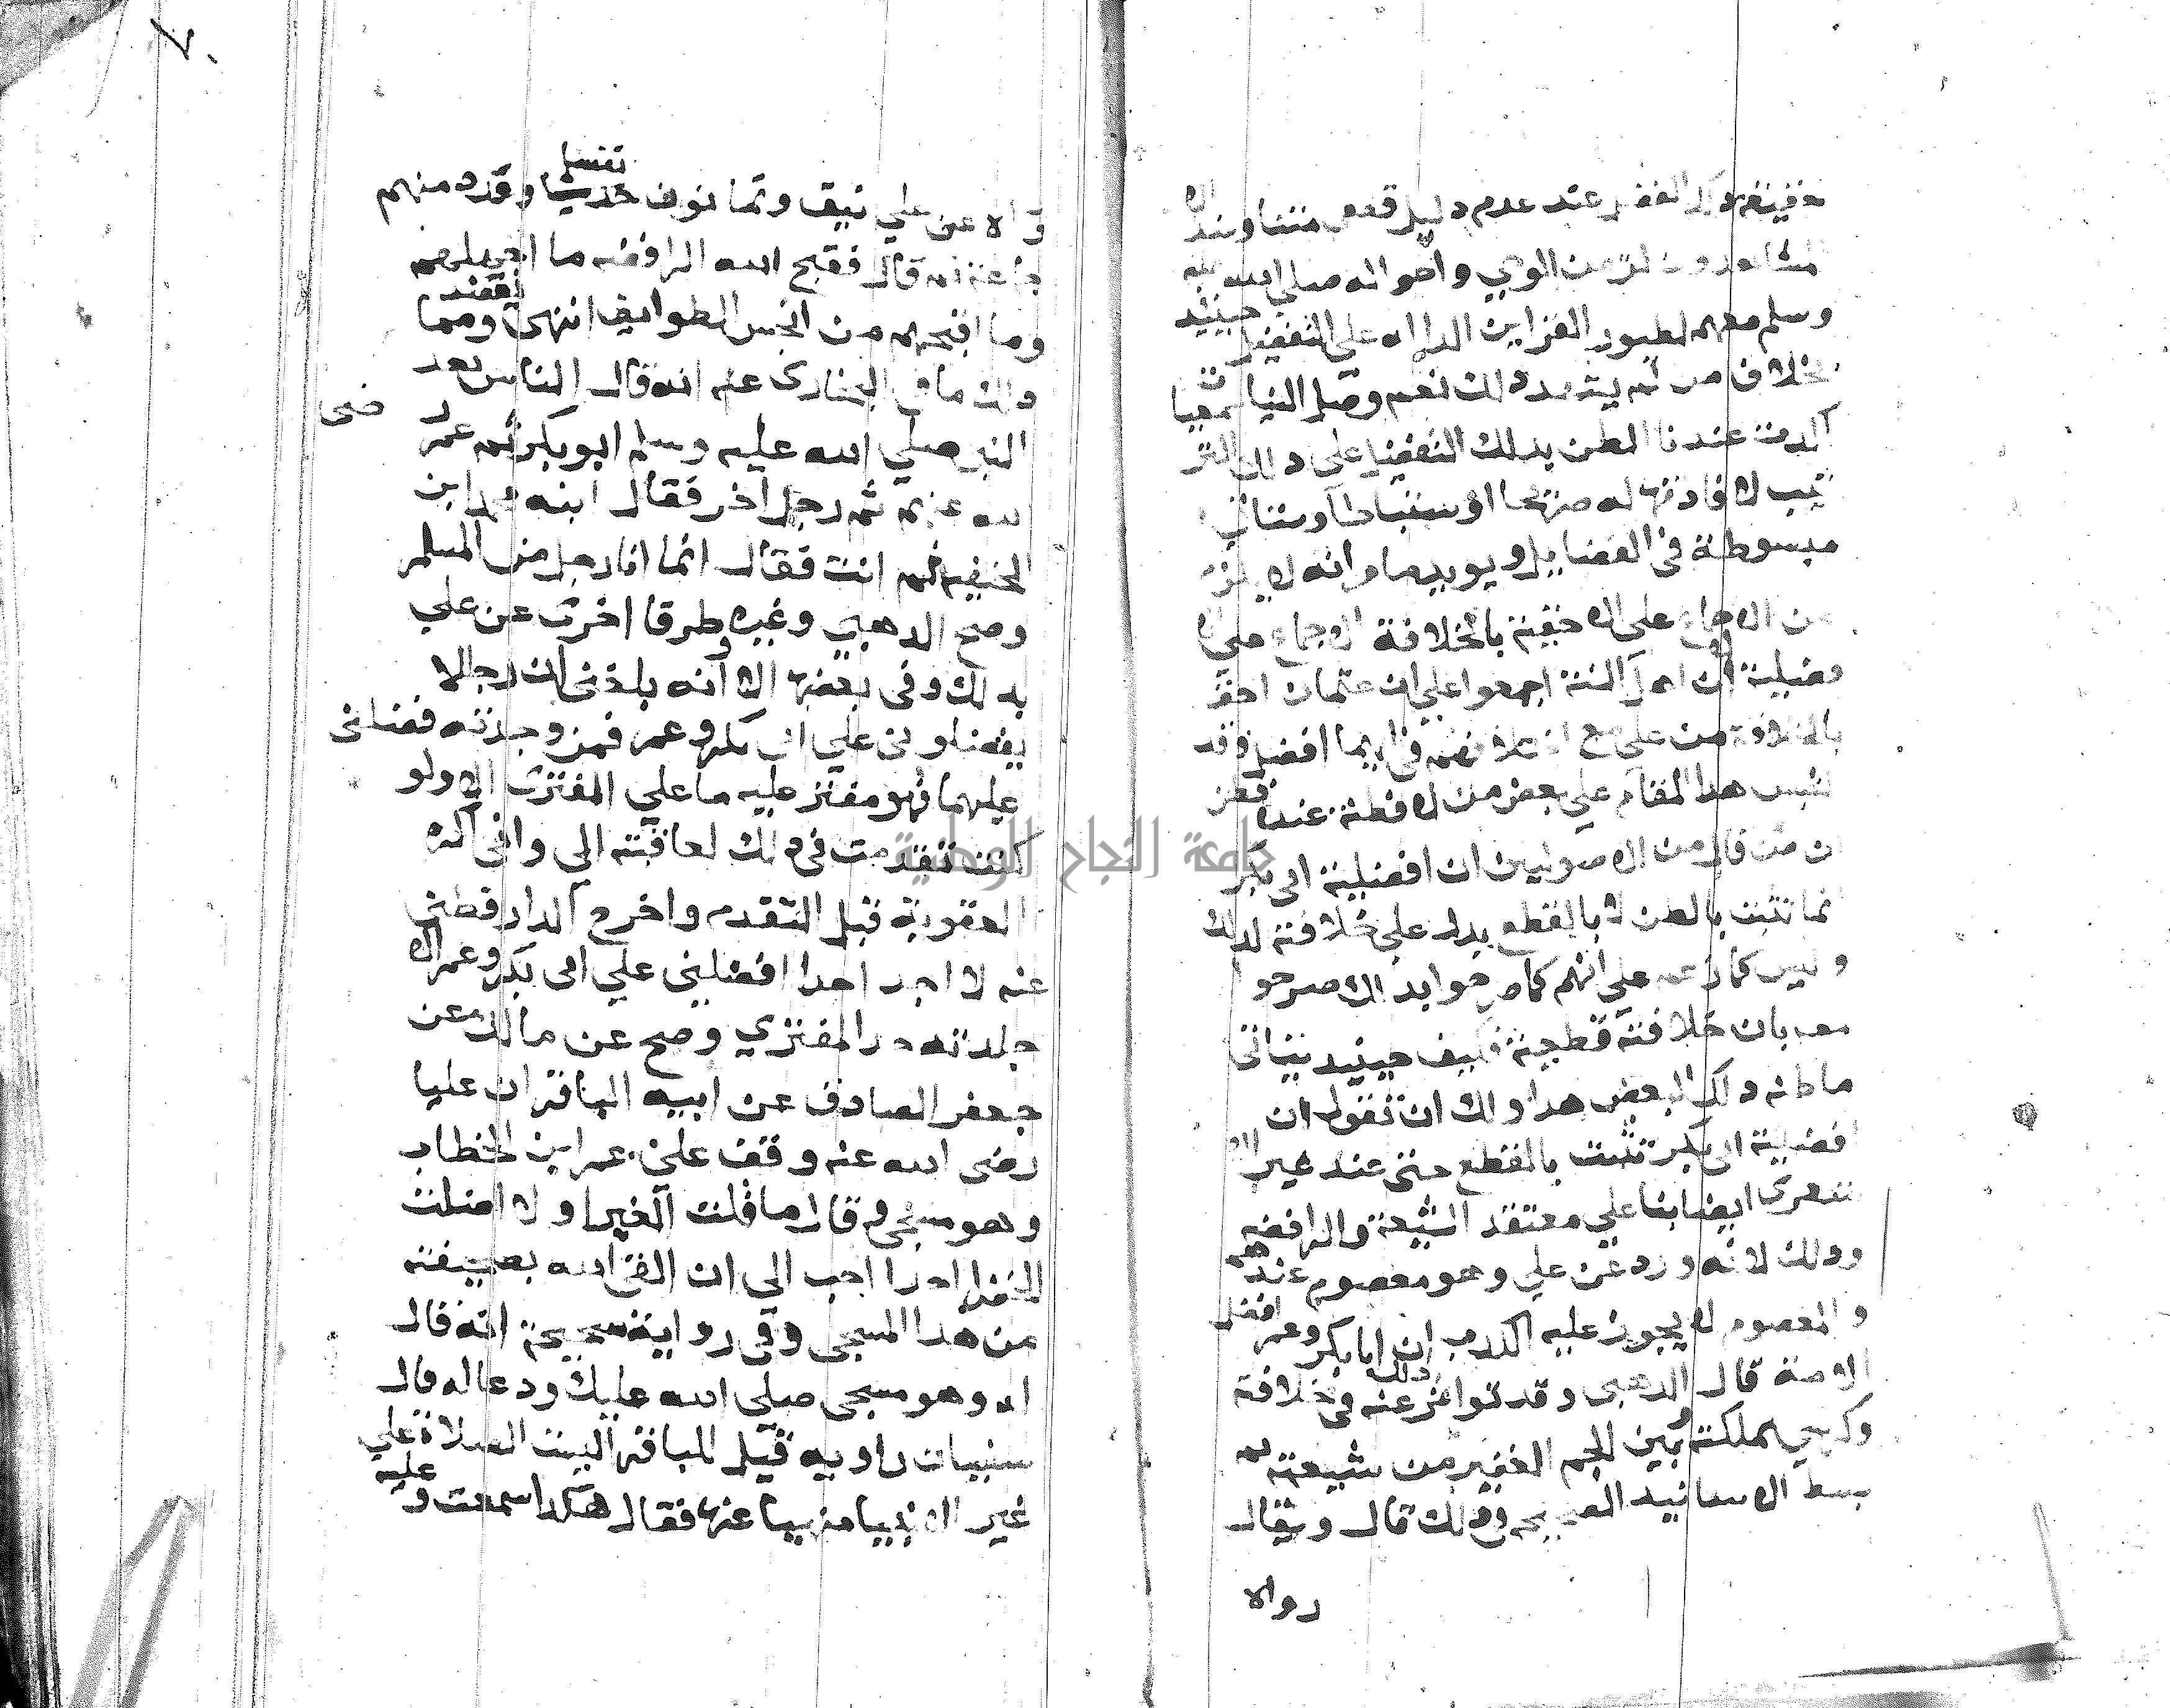 حقيقة ذلك الفضل عند عدم دليل قطعي متنا وسندا الا
المشاهدون لزمن الوحي واحواله صلي الله عليه
وسلم معهم لظهور القراين الداله علي التفضيل حينئذ
بخلاف من لم يشهد ذلك نعم وصل الينا سمعيات
اكدت عندنا الظن بذلك التفضيل علي ذلك التر
تيب لافادتها له صريحا او استنباطا وستاتي
مبسوطة في الفضايل ويويد مامر انه لا يلزم
من الاجماع علي الاحقيته بالخلافة الاجماع علي الا
فضلية ان اهل السنة اجمعوا علي ان عثمان احق
بالخلافة من علي مع اختلافهم في ايهما افضل وقد
التبس هذا المقام علي بعض من لا فطنة عنده فظن
ان من قال من الاصوليين ان افضلية ابي بكر
انما تثبت بالظن لا بالقطع يدل علي خلافته كذلك
وليس كما زعم علي انهم كما صرحوا بذلك صرحو
معه بان خلافته قطعية فكيف حينيذ يتاتي
ما ظنه ذلك البعض هذا ولك ان تقول ان
افضلية ابي بكر تثبت بالقطع حتي عند غير الا
شعري ايضا بنا علي معتقد الشيعة والرافضه
وذلك لانه ورد عن علي وهو معصوم عندهم
والمعصوم لا يجوز عليه الكذب ان ابا بكر وعمر افضل
الامة قال الذهبي وقد تواتر ذلك عنه في خلافة
وكرسي مملكته وبين الجم الغفير من شيعته ثم
بسط الاسانيد الصحيحه في ذلك قال ويقال
رواه
٧٠
رواه عن علي نيف وثمانون نفسا وعدد منهم
جماعة ثم قال فقبح الله الرافضه ما اجهلهم
وما اقبحهم من انجس الطوايف انتهي ومما يعضد
ذلك ما في البخاري عنه انه قال الناس بعد
النبي صلي الله عليه وسلم ابو بكر ثم عمر رضي
الله عنهم ثم رجل اخر فقال ابنه محمد ابن
الحنفيه ثم انت فقال انما انا رجل من المسلمـ
وصح الذهبي وغيره طرقا اخري عن علي
بذلك وفي بعضها الا وانه بلغني ان رجالا
يفضلوني علي ابي بكر وعمر فمن وجدته فضلني
عليهما فهو مفتر عليه ما علي المفتري الا ولو
كنت تقدمت في ذلك لعاقبته الي واني اكره
العقوبة قبل التقدم واخرج الدارقطني
عنه لا اجد احدا افضلني علي ابي بكر وعمر الا
جلدته حد المفتري وصح عن مالك عن
جعفر الصادق عن ابيه الباقر ان عليا
رضي الله عنه وقف علي عمر ابن الخطاب
وهو مسجي وقال ما قلت الغبرا ولا اضلت
الخضرا احدا احب الي ان القي الله بصحيفته
من هذا المسجي وفي رواية صحيحة انه قال
له وهو مسجي صلي الله عليك ودعا له قال
سفيان راويه قيل للباقر اليس الصلاة علي
غير الانبيا منهيا عنها فقال هكذا سمعت وعليه
جامعة النجاح الوطنية